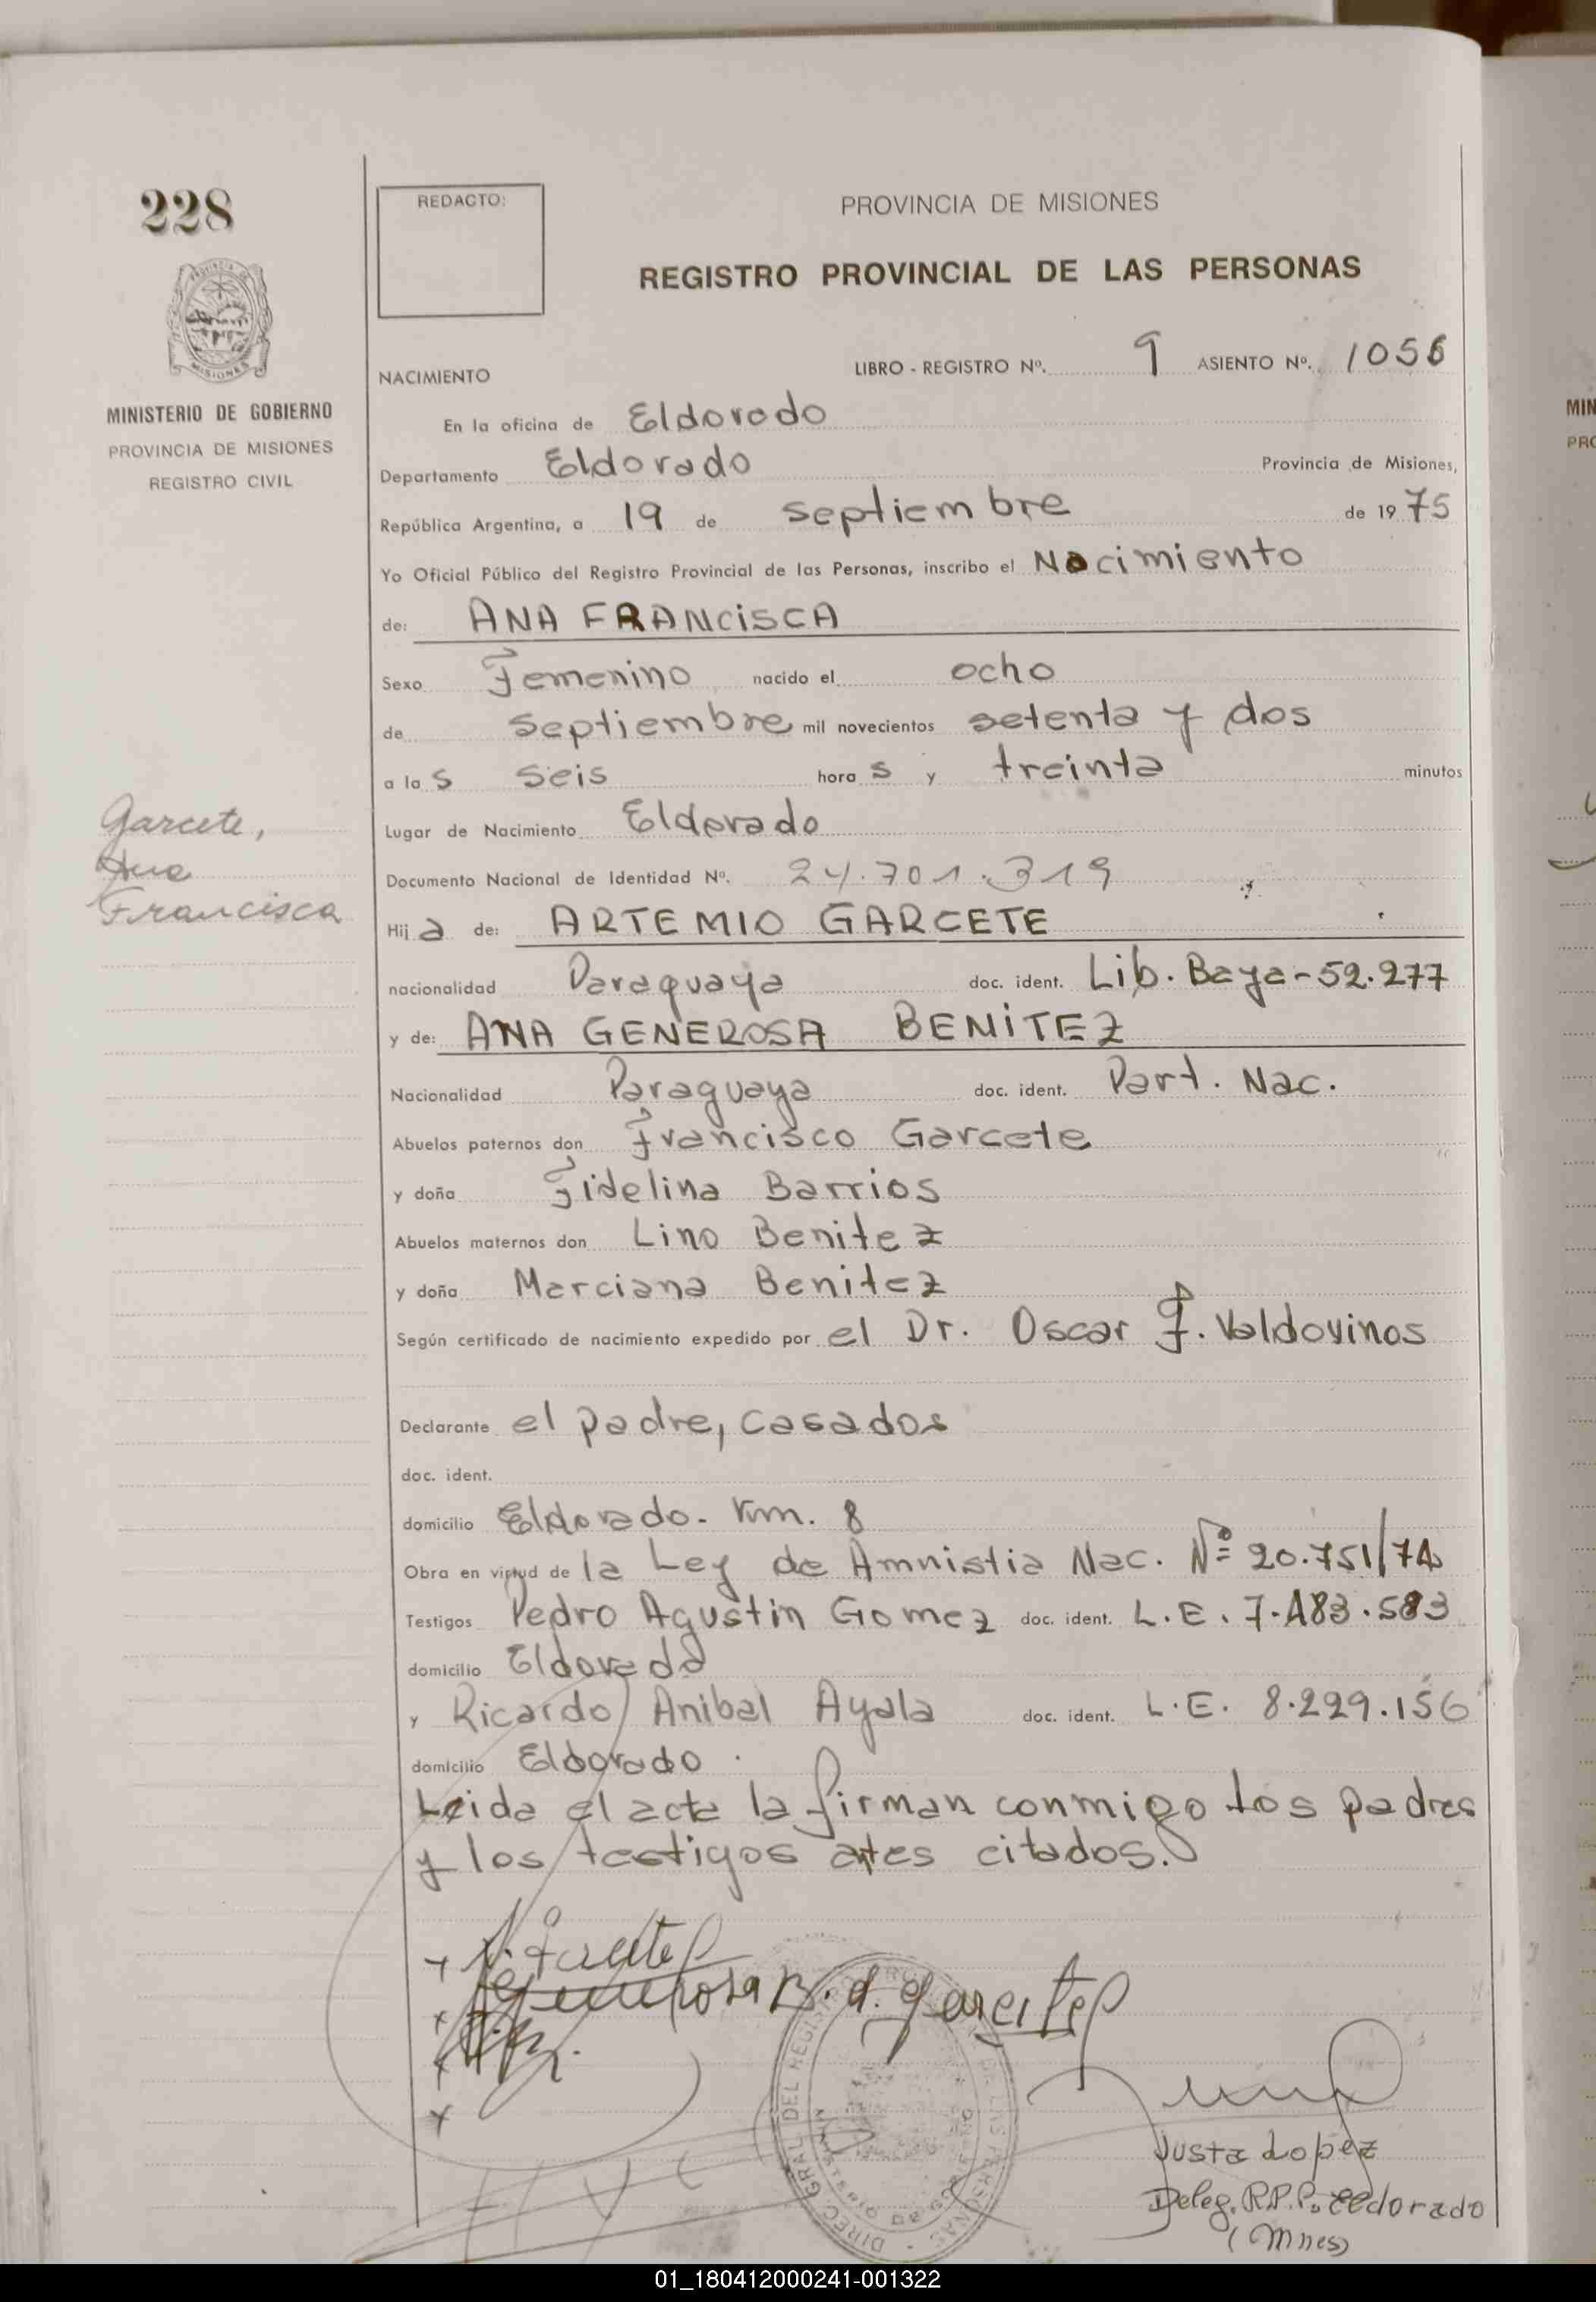 228
REDACTO:
PROVINCIA DE MISIONES
REGISTRO PROVINCIAL DE LAS PERSONAS
MINISTERIO DE GOBIERNO
PROVINCIA DE MISIONES
REGISTRO CIVIL
NACIMIENTO
LIBRO - REGISTRO Nº. 9 ASIENTO Nº. 1056
En la oficina de Eldorado
Departamento Eldorado Provincia de Misiones,
República Argentina, a 19 de septiembre de 1975
Yo Oficial Público del Registro Provincial de las Personas, inscribo el Nacimiento
de: ANA FRANCISCA
Sexo Femenino nacido el ocho
de septiembre mil novecientos setenta y dos
a las seis horas y treinta minutos
Lugar de Nacimiento Eldorado
Documento Nacional de Identidad Nº. 24.701.319
Garcete,
Ana
Francisca
Hija de: ARTEMIO GARCETE
nacionalidad Paraguaya doc. ident. Lib. Baya-52.277
y de: ANA GENEROSA BENITEZ
Nacionalidad Paraguaya doc. ident. Part. Nac.
Abuelos paternos don Francisco Garcete
y doña Fidelina Barrios
Abuelos maternos don Lino Benitez
y doña Marciana Benitez
Según certificado de nacimiento expedido por el Dr. Oscar J. Valdovinos
Declarante el padre, casados
doc. ident.
domicilio Eldorado. Km. 8
Obra en virtud de la Ley de Amnistia Nac. Nº 20.751/74
Testigos Pedro Agustin Gomez doc. ident. L.E. 7.483.583
domicilio Eldorado
y Ricardo Anibal Ayala doc. ident. L.E. 8.229.156
domicilio Eldorado.
Leida el acta la firman conmigo los padres
y los testigos antes citados.
Justa Lopez
Deleg. R.P.P. Eldorado
(Mnes)
01_180412000241-001322